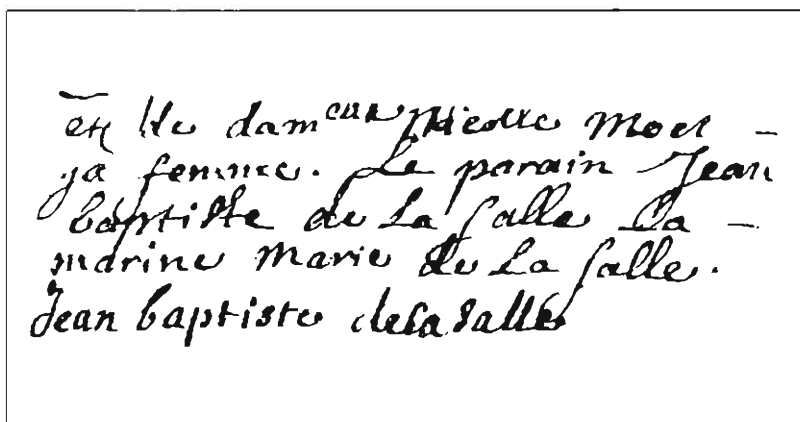 et de dam Nicolle Moet -
sa femme. Le parain Jean
baptiste de La Salle La -
marine Marie de La Salle.
Jean baptiste de La Salle